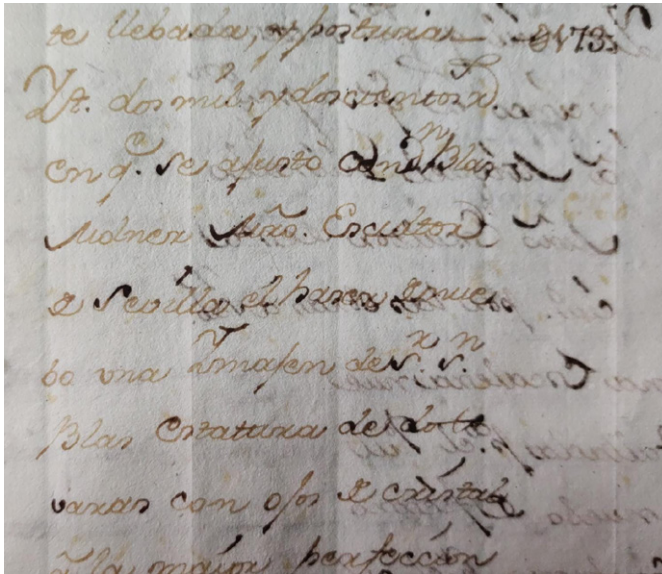 te llebada, y posturas — 2173
Yt. dos mil, y doscientos r.s
en q.e se ajustó con D.n Blas
Molner Mro. Escultor
de Sevilla el hacer de nue
bo una Imagen de S.r S.n
Blas estatura de dos
varas con ojos de cristal
a la maior perfección